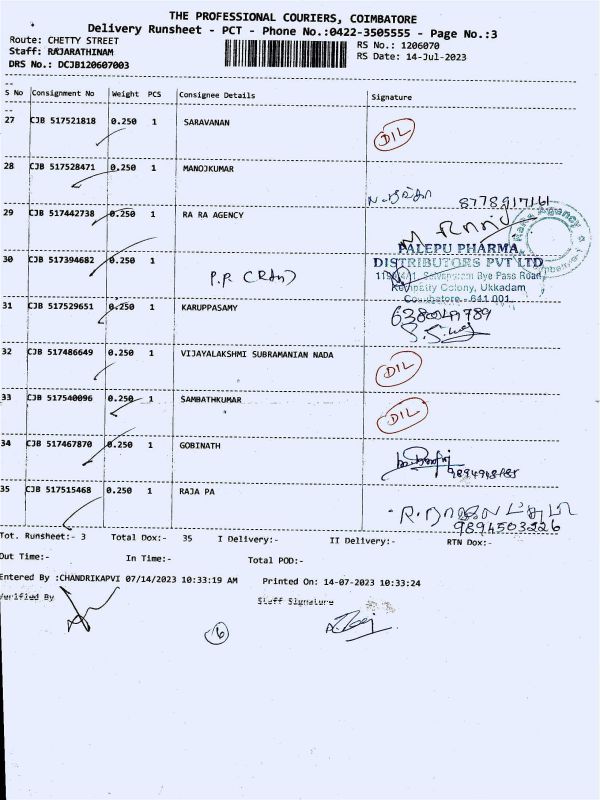 THE PROFESSIONAL COURIERS, COIMBATORE
Delivery Runsheet - PCT - Phone No.:0422-3505555 - Page No.:3
Route: CHETTY STREET
RS No.: 1206070
Staff: RAJARATHINAM
RS Date: 14-Jul-2023
DRS No.: DCJB120607003
S No Consignment No Weight PCS Consignee Details Signature
27 CJB 517521818 0.250 1 SARAVANAN
DIL
28 CJB 517528471 0.250 1 MANOJKUMAR
8778917161
29 CJB 517442738 0.250 1 RA RA AGENCY
PALEPU PHARMA
DISTRIBUTORS PVT LTD
Bye Pass Road,
Colony, Ukkadam
Coimbatore - 641 001.
30 CJB 517394682 0.250 1
P.P
31 CJB 517529651 0.250 1 KARUPPASAMY
32 CJB 517486649 0.250 1 VIJAYALAKSHMI SUBRAMANIAN NADA
DIL
33 CJB 517540096 0.250 1 SAMBATHKUMAR
DIL
34 CJB 517467870 0.250 1 GOBINATH
35 CJB 517515468 0.250 1 RAJA PA
9894503226
Tot. Runsheet:- 3 Total Dox:- 35 I Delivery:- II Delivery:- RTN Dox:-
Out Time:- In Time:- Total POD:-
Entered By :CHANDRIKAPVI 07/14/2023 10:33:19 AM Printed On: 14-07-2023 10:33:24
Verified By Staff Signature
6